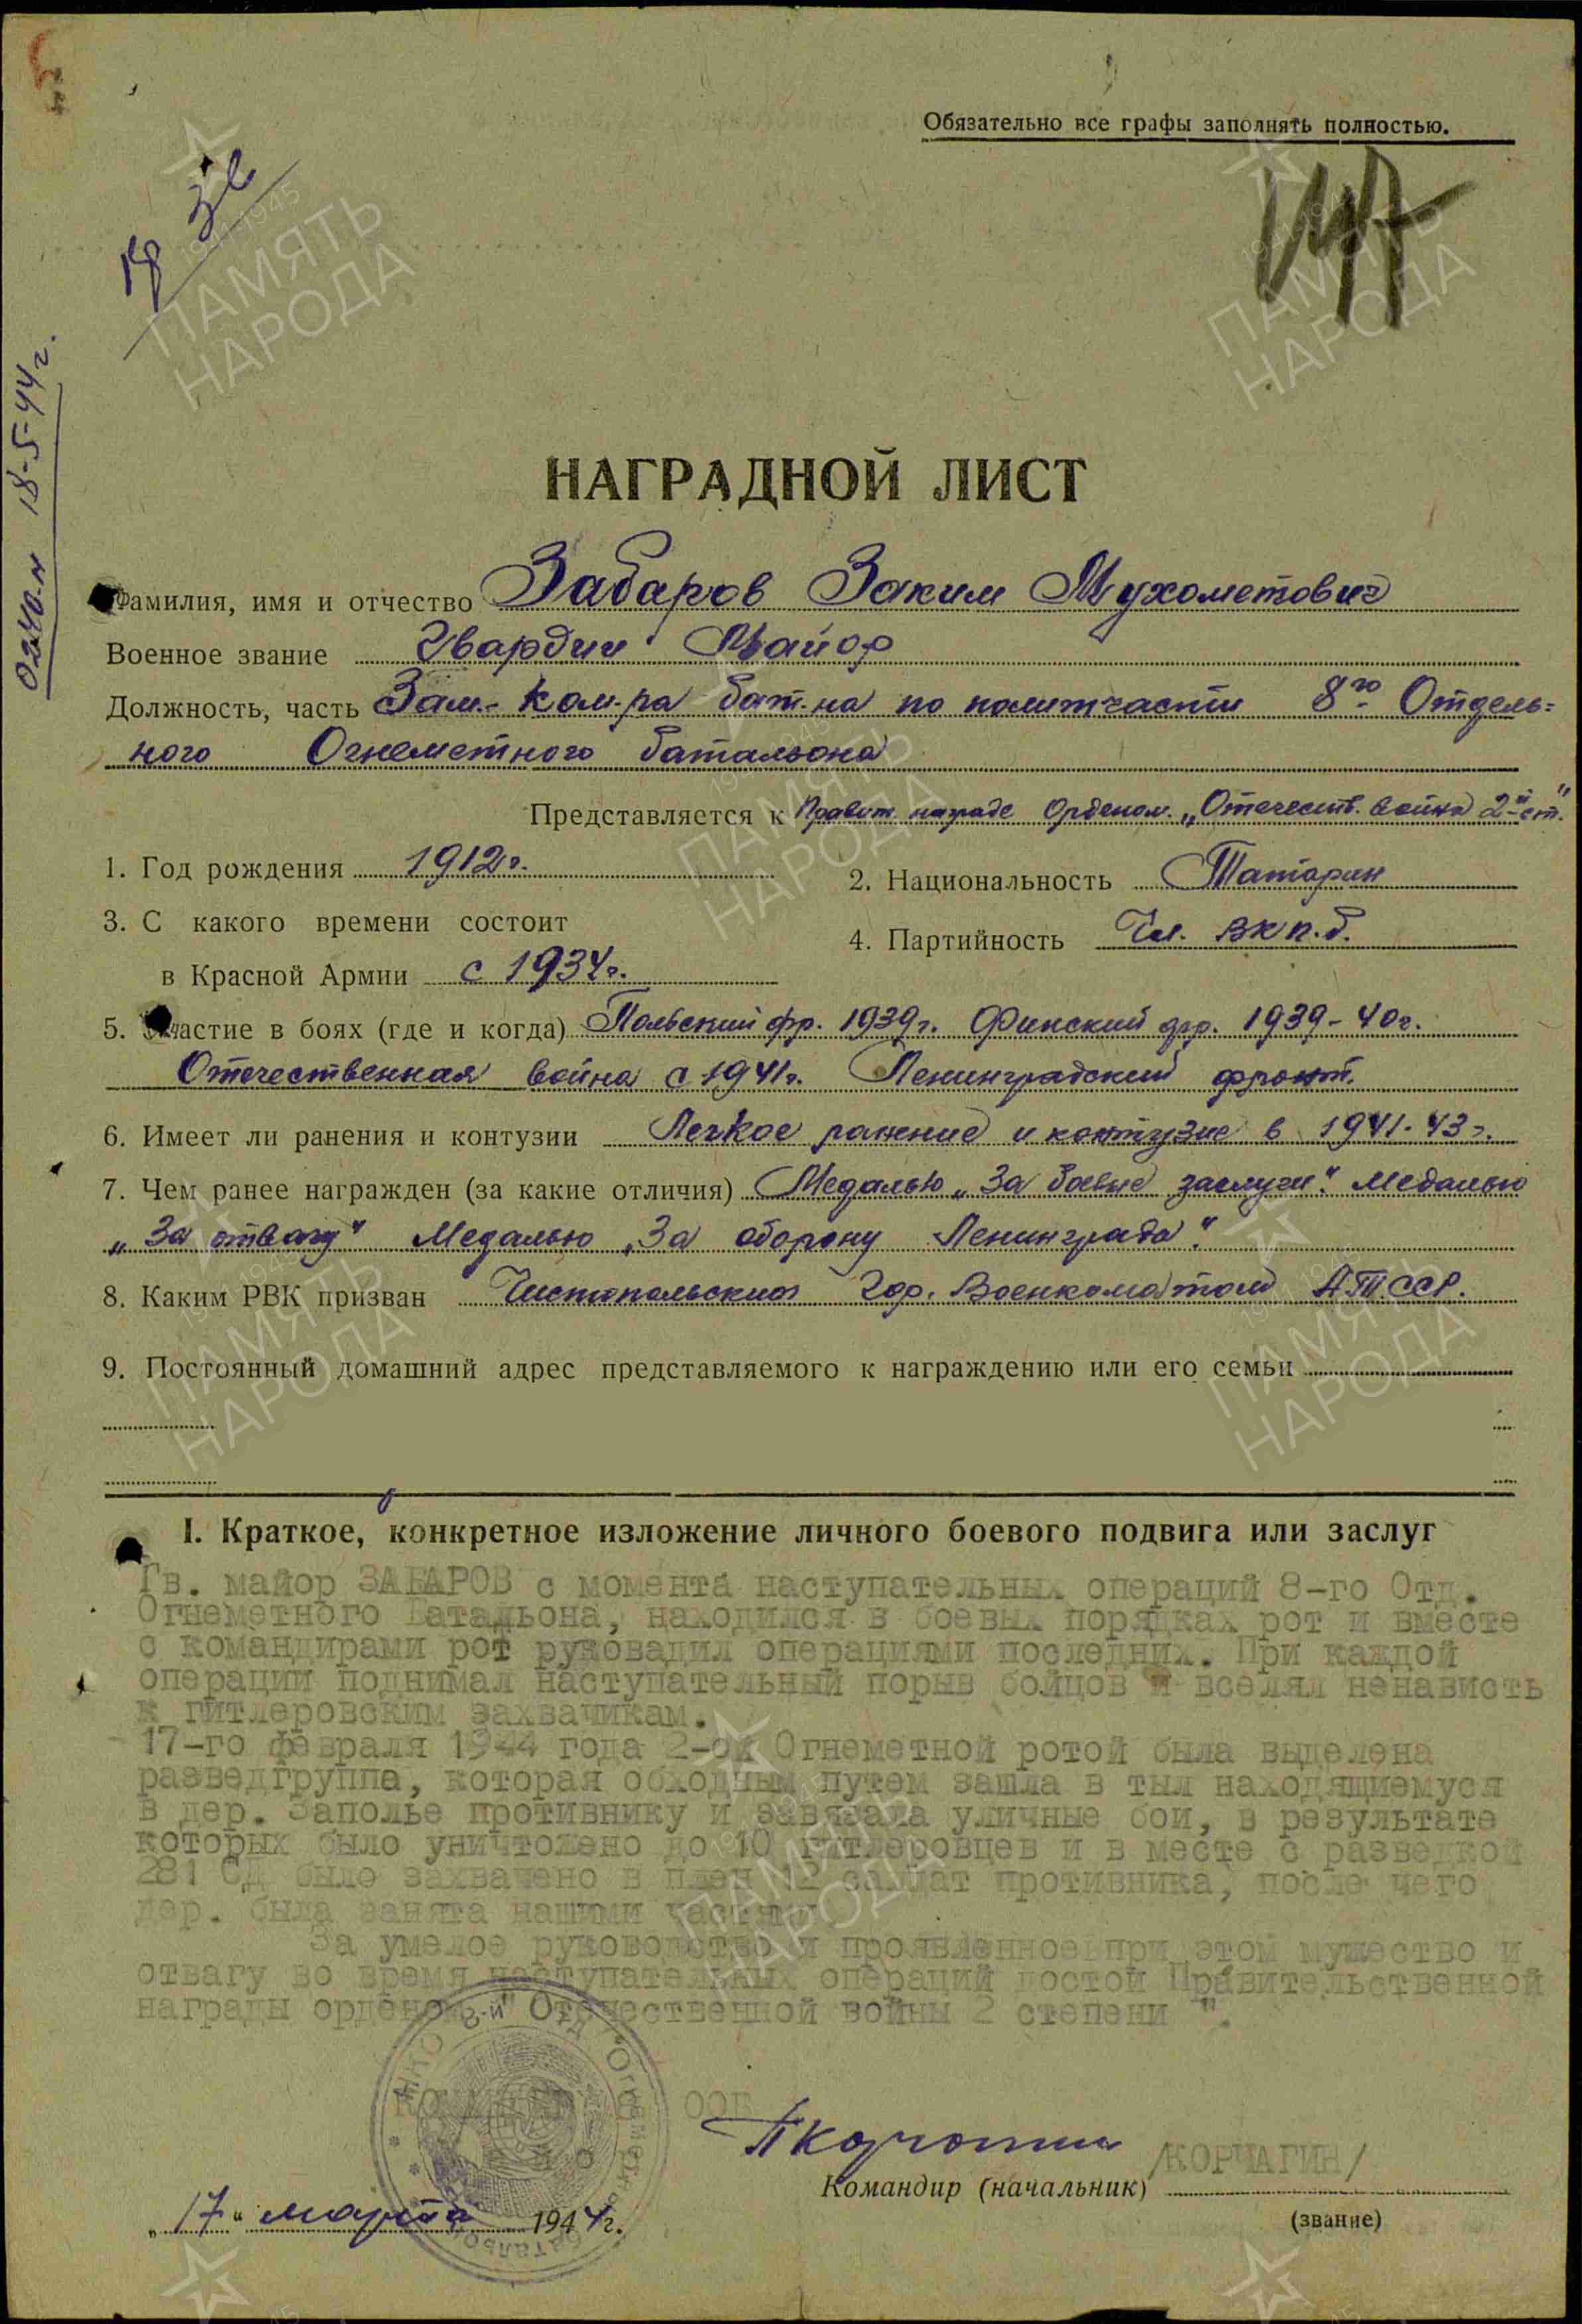 Обязательно все графы заполнять полностью.
0240-н 18-5-44г.
НАГРАДНОЙ ЛИСТ
Фамилия, имя и отчество Забаров Заким Мухометович
Военное звание Гвардии Майор
Должность, часть Зам.- Ком-ра бат-на по политчасти 8го Отдель=
ного Огнеметного батальона
Представляется к Правит. награде Орденом „Отечеств. война 2й ст."
1. Год рождения 1912г.
2. Национальность Татарин
3. С какого времени состоит
в Красной Армии с 1934г.
4. Партийность Чл. ВКП.б.
5. Участие в боях (где и когда) Польский фр. 1939г. Финский фр. 1939-40г.
Отечественная война с 1941г. Ленинградский фронт.
6. Имеет ли ранения и контузии Легкое ранение и контузие в 1941-43г.
7. Чем ранее награжден (за какие отличия) Медалью „За боевые заслуги". Медалью
„За отвагу" Медалью „За оборону Ленинграда".
8. Каким РВК призван Чистопольским Гор. Военкоматом А.Т.ССР.
9. Постоянный домашний адрес представляемого к награждению или его семьи
I. Краткое, конкретное изложение личного боевого подвига или заслуг
Гв. майор ЗАБАРОВ с момента наступательных операций 8-го Отд.
Огнеметного Батальона, находился в боевых порядках рот и вместе
с командирами рот руковадил операциями последних. При каждой
операции поднимал наступательный порыв бойцов и вселял ненависть
к гитлеровским захвачикам.
17-го февраля 1944 года 2-ой Огнеметной ротой была выделена
разведгруппа, которая обходным путем зашла в тыл находящиемуся
в дер. Заполье противнику и завязала уличные бои, в результате
которых было уничтожено до 10 гитлеровцев и в месте с разведкой
281 СД было захвачено в плен 12 салдат противника, после чего
дер. была занята нашими частями.
За умелое руководство и проявленное при этом мужество и
отвагу во время наступательных операций достой Правительственной
награды орденом " Отечественной войны 2 степени ".
КОМАНДИР 8 ООБ
/КОРЧАГИН/
Командир (начальник)
(звание)
„17" марта 1944г.
НКО 8-й Отд. Огнеметный батальон
ПАМЯТЬ НАРОДА
1941-1945